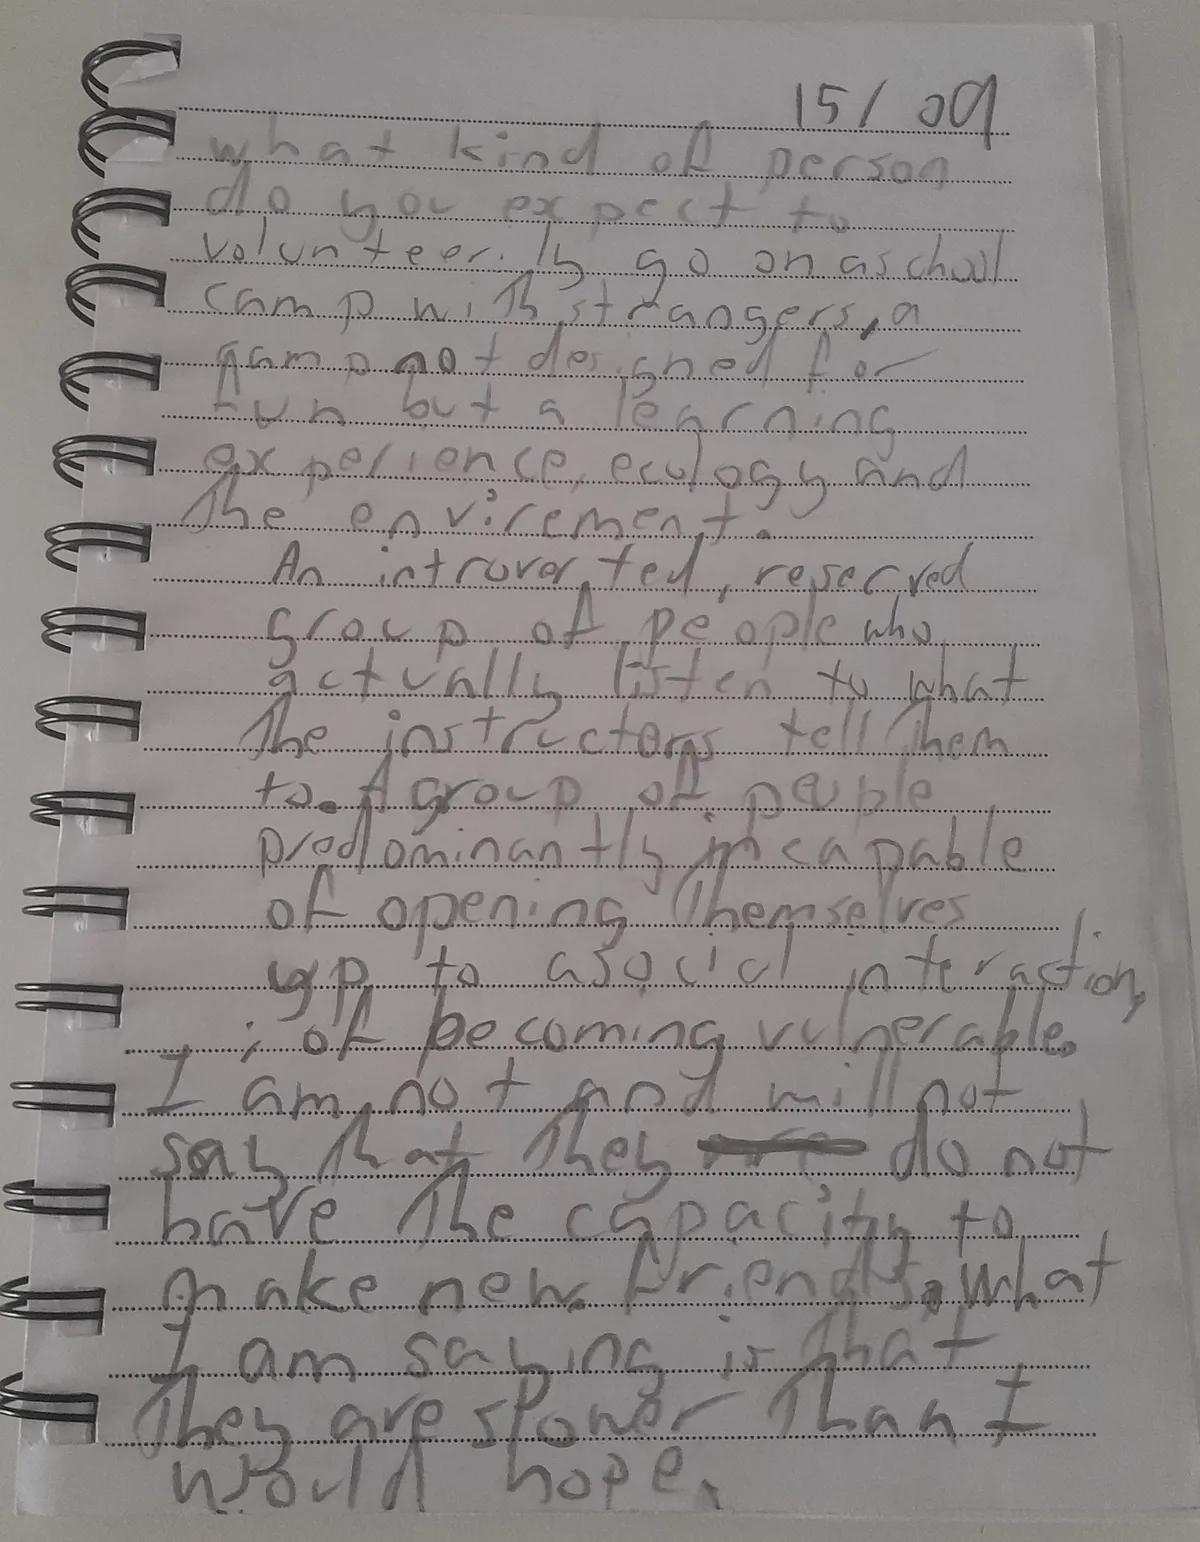 15/09
what kind of person
do you expect to
volunteer. To go on a school
camp with strangers, a
camp not designed for
fun but a learning
experience, ecology and
the envirement.
An introverted, reserved
group of people who
actually listen to what
the instructors tell them
to. A group of people
predominantly incapable
of opening themselves
up to a social interaction,
; of becoming vulnerable.
I am not and will not
say that they do not
have the capacity to
make new friends, what
I am saying is that
they are slower than I
would hope.